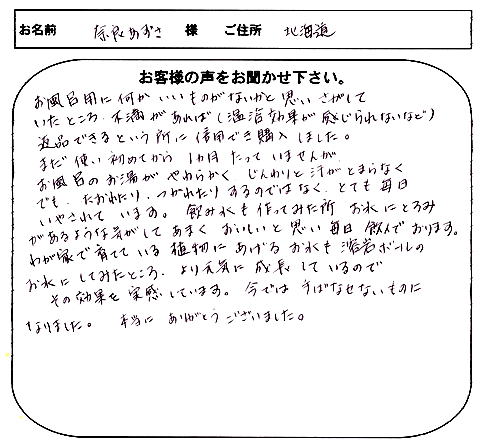 お名前 奈良あずさ 様 ご住所 北海道
お客様の声をお聞かせ下さい。
お風呂用に何かいいものがないかと思いさがして
いたところ、不満があれば(湯治効果が感じられないなど)
返品できるという所に信用でき購入しました。
まだ使い初めてから1ヵ月たっていませんが、
お風呂のお湯がやわらかく じんわりと汗がとまらなく
でも、たおれたり、つかれたりするのではなく、とても毎日
いやされています。飲み水も作ってみた所 お水にとろみ
があるような気がしてあまくおいしいと思い毎日飲んでおります。
わが家で育てている植物にあげるお水も溶岩ボールの
お水にしてみたところ、より元気に成長しているので
その効果を実感しています。今では手ばなせないものに
なりました。 本当にありがとうございました。